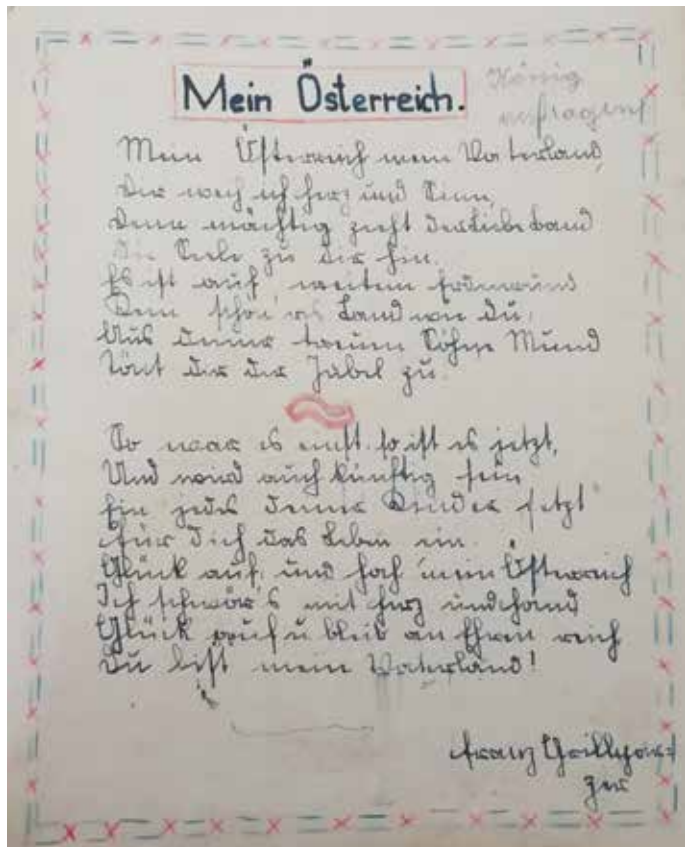 Mein Österreich.
König
anfragen!
Mein Österreich mein Vaterland,
Dir weih ich Herz und Sinn,
Denn mächtig zieht der Liebe Band
Die Seele zu dir hin.
Es ist auf weitem Erdenrund
Kein schön'res Land wie du,
Aus deiner treuen Söhne Mund
Tönt dir der Jubel zu.
So war es einst, so ist es jetzt,
Und wird auch künftig sein
Ein jedes deiner Kinder setzt
Für dich das Leben ein.
Glück auf, und hoch mein Österreich
Ich schwör's mit Herz und Hand
Glück auf u bleib an Ehren reich
Du bist mein Vaterland!
Franz
zer